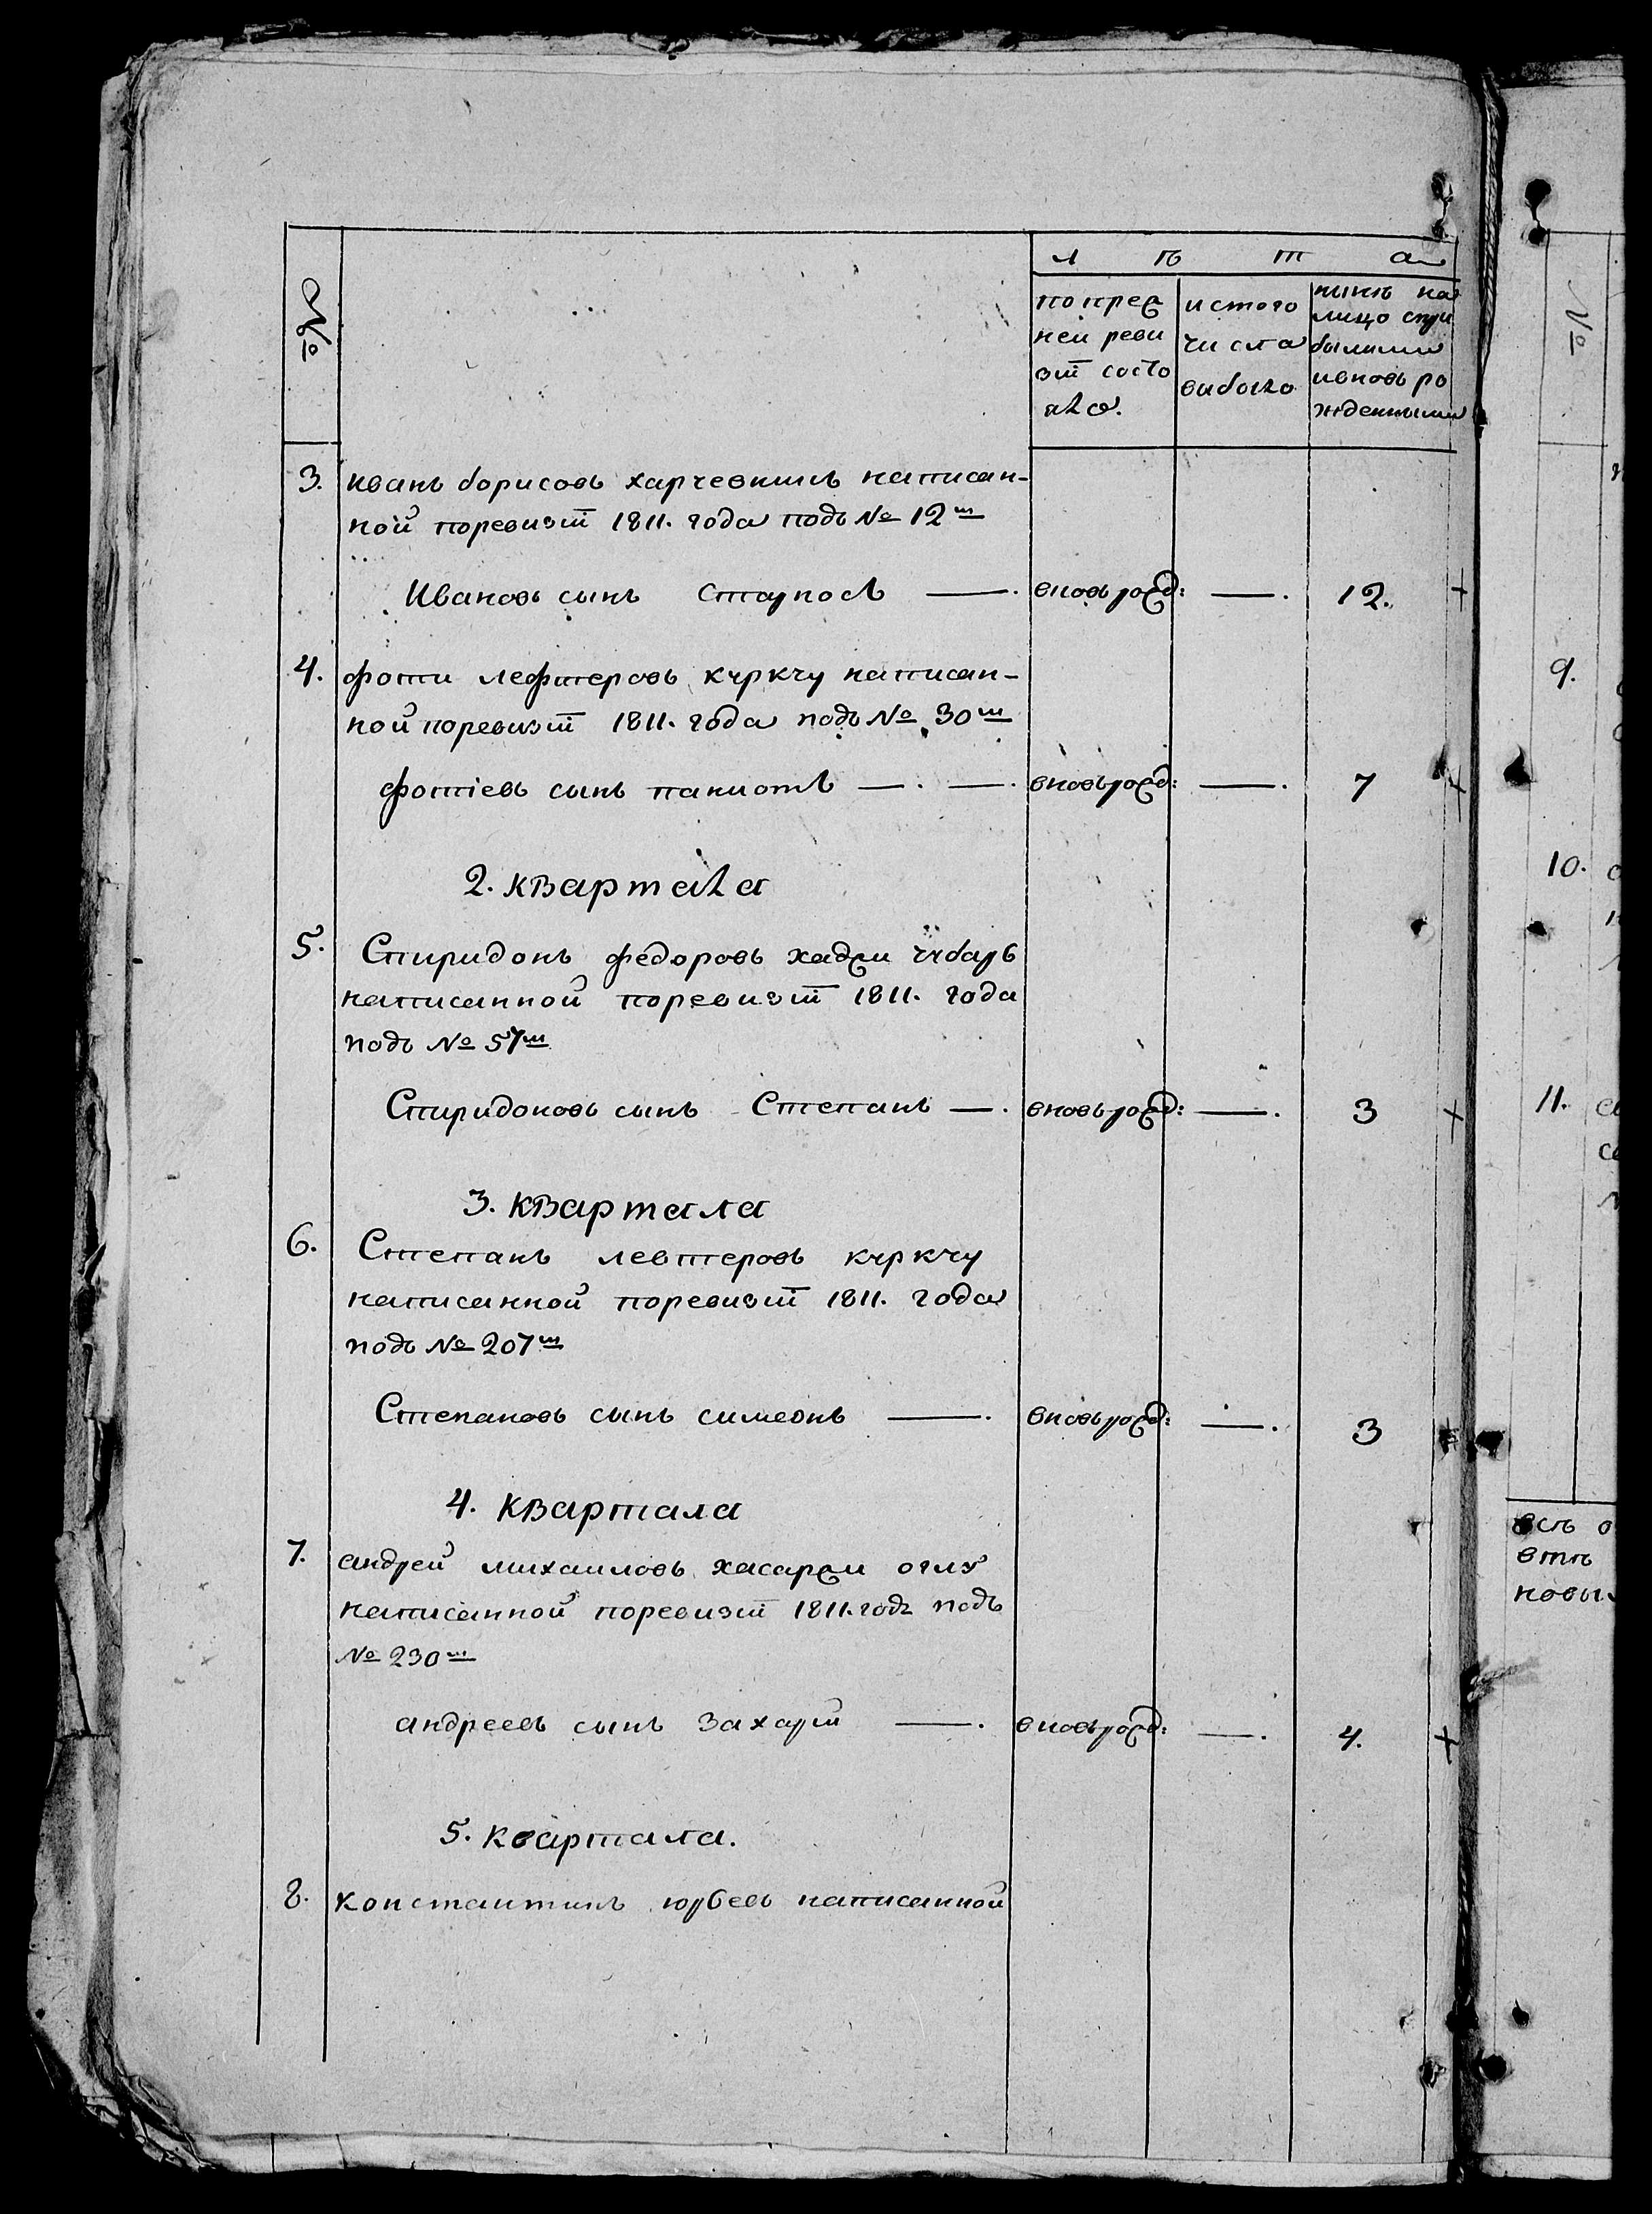 №
лѣта
по пред ней реви зіи состо яло.
ис того числа выбыло
нынѣ на лицо спри былыми и вновь ро жденными
3. иванъ борисовъ харчевникъ написан-
ной поревизіи 1811. года подъ № 12ш
Ивановъ сынъ Стаупосъ — . вновьрожд: — . 12. +
4. фоти лефтеровъ кѹркчу написан-
ной поревизіи 1811. года подъ № 30ш
фотіевъ сынъ паниотъ — . — . вновьрожд: — . 7 +
2. квартала
5. Спиридонъ федоровъ хаджи чубарь
написанной поревизіи 1811. года
подъ № 57ш
Спиридоновъ сынъ Степанъ — . вновьрожд: — . 3 +
3. квартала
6. Степанъ левтеровъ кѹркчу
написанной поревизіи 1811. года
подъ № 207ш
Степановъ сынъ симеонъ — . вновьрожд: — . 3 +
4. квартала
7. андрей михаиловъ хасарджи оглу
написанной поревизіи 1811. года подъ
№ 230ш
андреевъ сынъ Захарій — . вновьрожд: — . 4. +
5. квартала.
8. константинъ юрьевъ написанной
№
9.
10.
11.